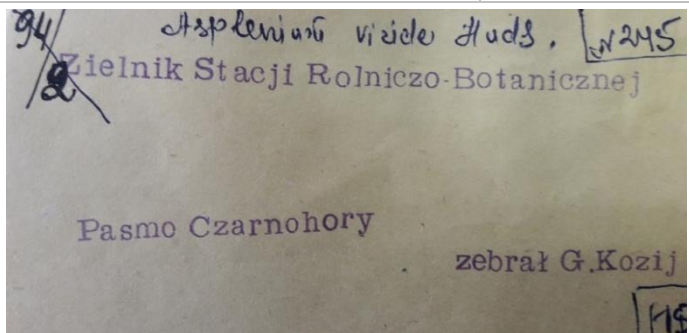 94/2 Asplenium viride Huds. N245
Zielnik Stacji Rolniczo-Botanicznej
Pasmo Czarnohory
zebrał G.Kozij